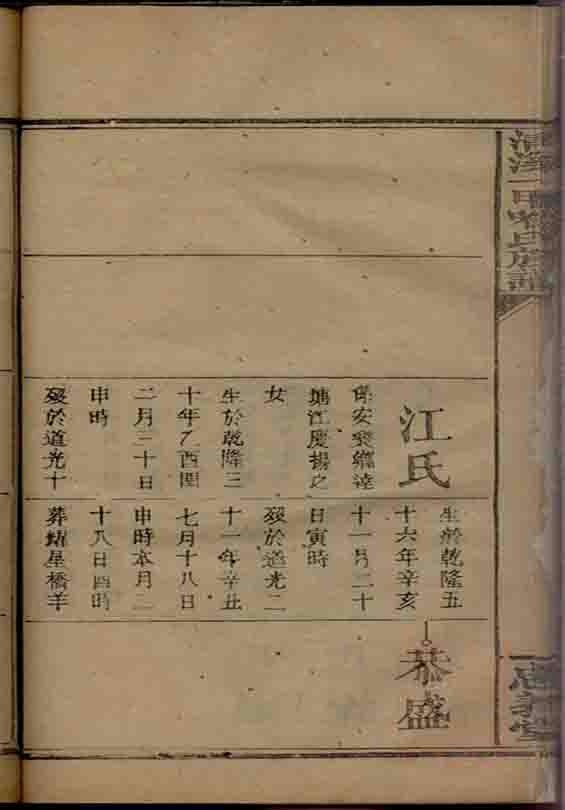 氏族譜
忠義堂
江氏
保安裴鄉達
塘江慶揚之
女
生於乾隆三
十年乙酉閏
二月二十日
申時
歿於道光十
生於乾隆五
十六年辛亥
十一月二十
日寅時
歿於道光二
十一年辛丑
七月十八日
申時本月二
十八日酉時
葬結星橋羊
恭盛